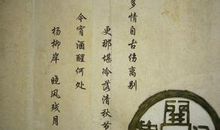 多情自古伤离别
更那堪冷落清秋节
今宵酒醒何处
杨柳岸 晓风残月
開元